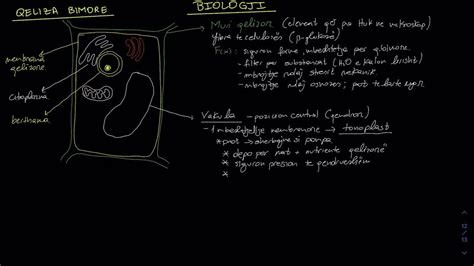 QELIZA BIMORE
BIOLOGJI
membrana qelizore
citoplazma
berthama
Muri qelizor (element që pa Huk ne mikroskop)
fibra te celulozës (β-glukozë)
F(x): siguron forme, mbeshtetje per
- filter per substancat (H₂O e kalon lirisht)
- mbrojtje ndaj stresit mekanik
- mbrojtje ndaj osmozes;
Vakuola - pozicion central (qendror)
- 1 mbeshtjellje membranore → tonoplasti
* prot → si pompa
* depo per nutriente qelizorë
* siguron presion te qendrueshëm
*
12
13